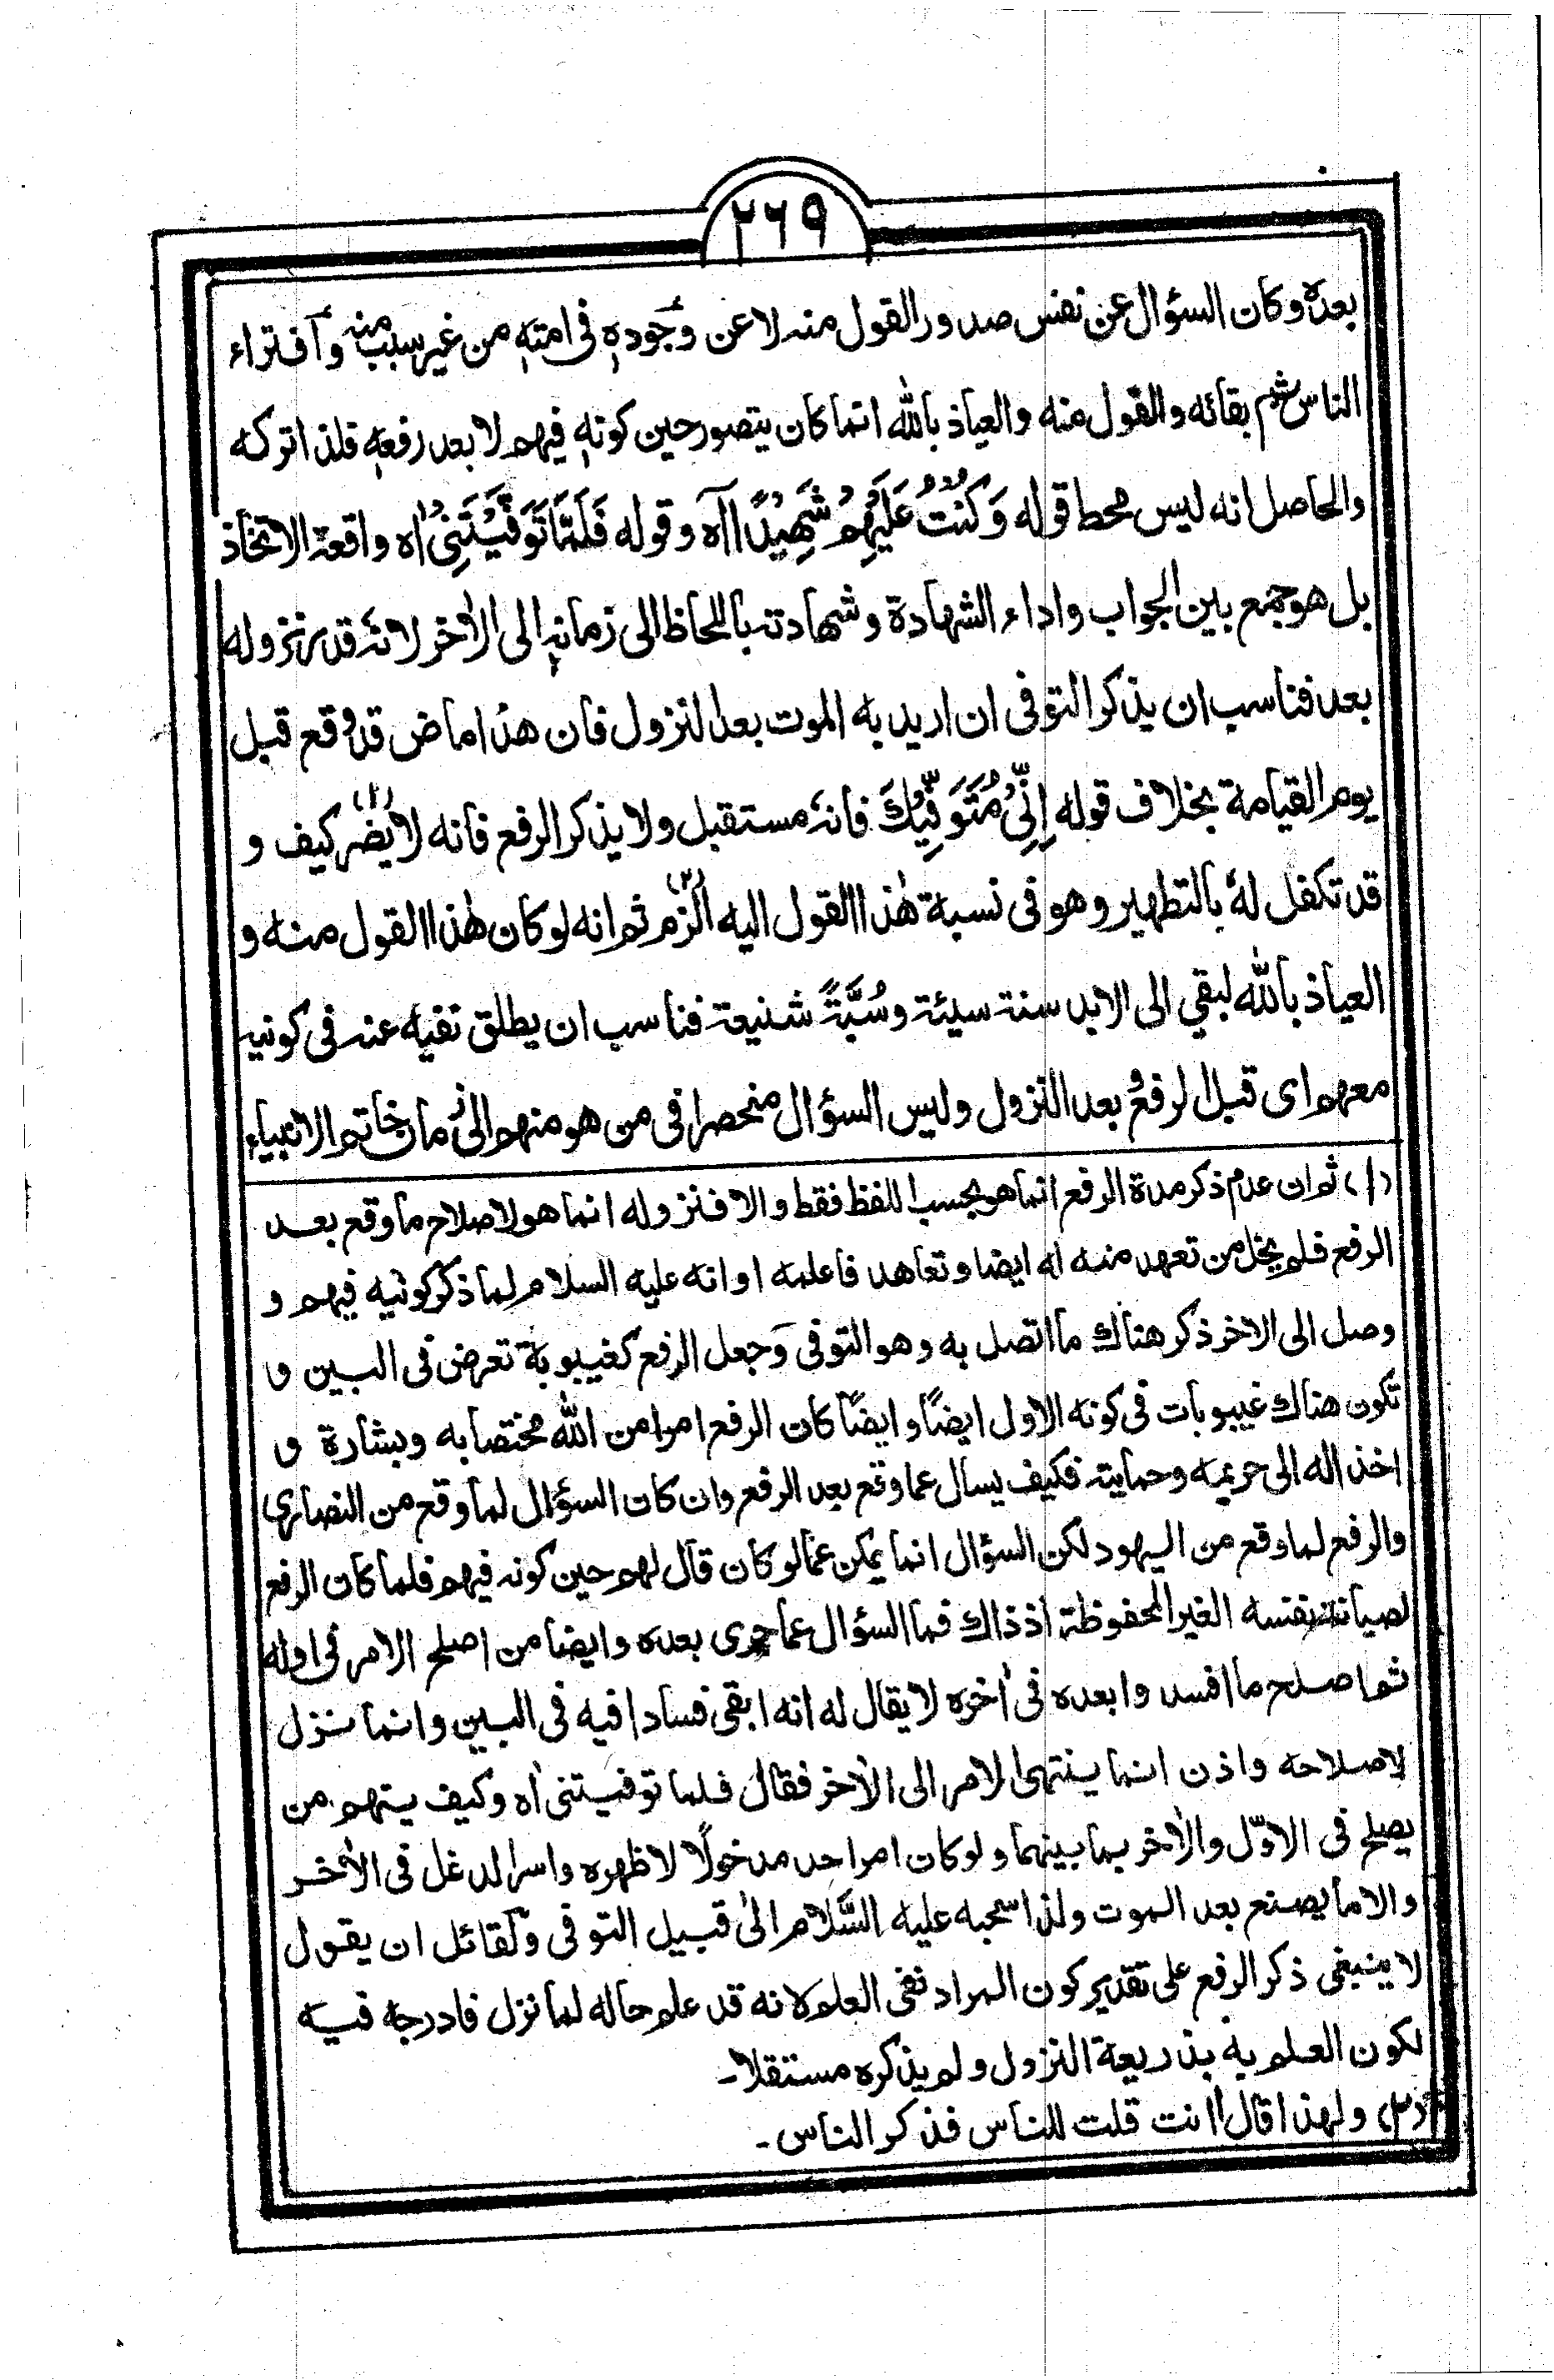 ٢٦٩
بعده وكان السؤال عن نفس صدور القول منه لا عن وجوده في امته من غير سبب منه وافتراء
الناس ثم بقائه والقول منه والعياذ بالله انما كان يتصور حين كونه فيهم لا بعد رفعه فلذا تركه
والحاصل انه ليس محط قوله وَكُنْتُ عَلَيْهِمْ شَهِيْدًا اٰه وقوله فَلَمَّا تَوَفَّيْتَنِيْ اٰه واقعة الاتخاذ
بل هو جمع بين الجواب واداء الشهادة وشهادته باللحاظ الى زمانه الى الاٰخر لانه قدر نزوله
بعد فناسب ان يذكر التوفى ان اريد به الموت بعد النزول فان هذا ماض قد وقع قبل
يوم القيامة بخلاف قوله اِنِّيْ مُتَوَفِّيْكَ فانه مستقبل ولا يذكر الرفع فانه لا يضر (١) كيف و
قد تكفل له بالتطهير وهو فى نسبة هٰذا القول اليه الزم (٢) ثم انه لو كان هٰذا القول منه و
العياذ بالله لبقي الى الابد سنة سيئة وسُبَّةً شنيعة فناسب ان يطلق نفيه عنه فى كونيه
معهم اى قبل الرفع وبعد النزول وليس السؤال منحصرا فى من هو منهم الى زمان خاتم الانبياء
(١) ثم ان عدم ذكر مدة الرفع انما هو بحسب اللفظ فقط والا فنزوله انما هو لاصلاح ما وقع بعد
الرفع فلم يخل من تعهد منه له ايضا وتعاهد فاعلمه او انه عليه السلام لما ذكر كونيه فيهم و
وصل الى الاخر ذكر هناك ما اتصل به وهو التوفى وجعل الرفع كغيبوبة تعرض فى البين و
تكون هناك غيبوبات فى كونه الاول ايضًا وايضًا كان الرفع امرا من الله مختصا به وبشارة و
اخذا له الى حريمه وحمايته فكيف يسال عما وقع بعد الرفع وان كان السؤال لما وقع من النصارى
والرفع لما وقع من اليهود لكن السؤال انما يمكن عما لو كان قال لهم حين كونه فيهم فلما كان الرفع
لصيانة نفسه الغير المحفوظة اذ ذاك فما السؤال عما جرى بعده وايضا من اصلح الامر فى اوله
ثم اصلح ما افسدوا بعده فى اٰخره لا يقال له انه ابقى فسادا فيه فى البين وانما ينزل
لاصلاحه واذن انما ينتهى الامر الى الاٰخر فقال فلما توفيتنى اٰه وكيف يتهم من
يصلح فى الاوّل والاٰخر بما بينهما ولو كان امر احد مدخولًا لاظهره واسر الدغل فى الاٰخر
والا ما يصنع بعد الموت ولذا سحبه عليه السَّلام الىٰ قبيل التوفى ولقائل ان يقول
لا ينبغى ذكر الرفع على تقدير كون المراد نفى العلم لانه قد علم حاله لما نزل فادرجه فيه
لكون العلم به بذريعة النزول ولم يذكره مستقلا۔
(٢) ولهذا قال اانت قلت للناس فذكر الناس۔